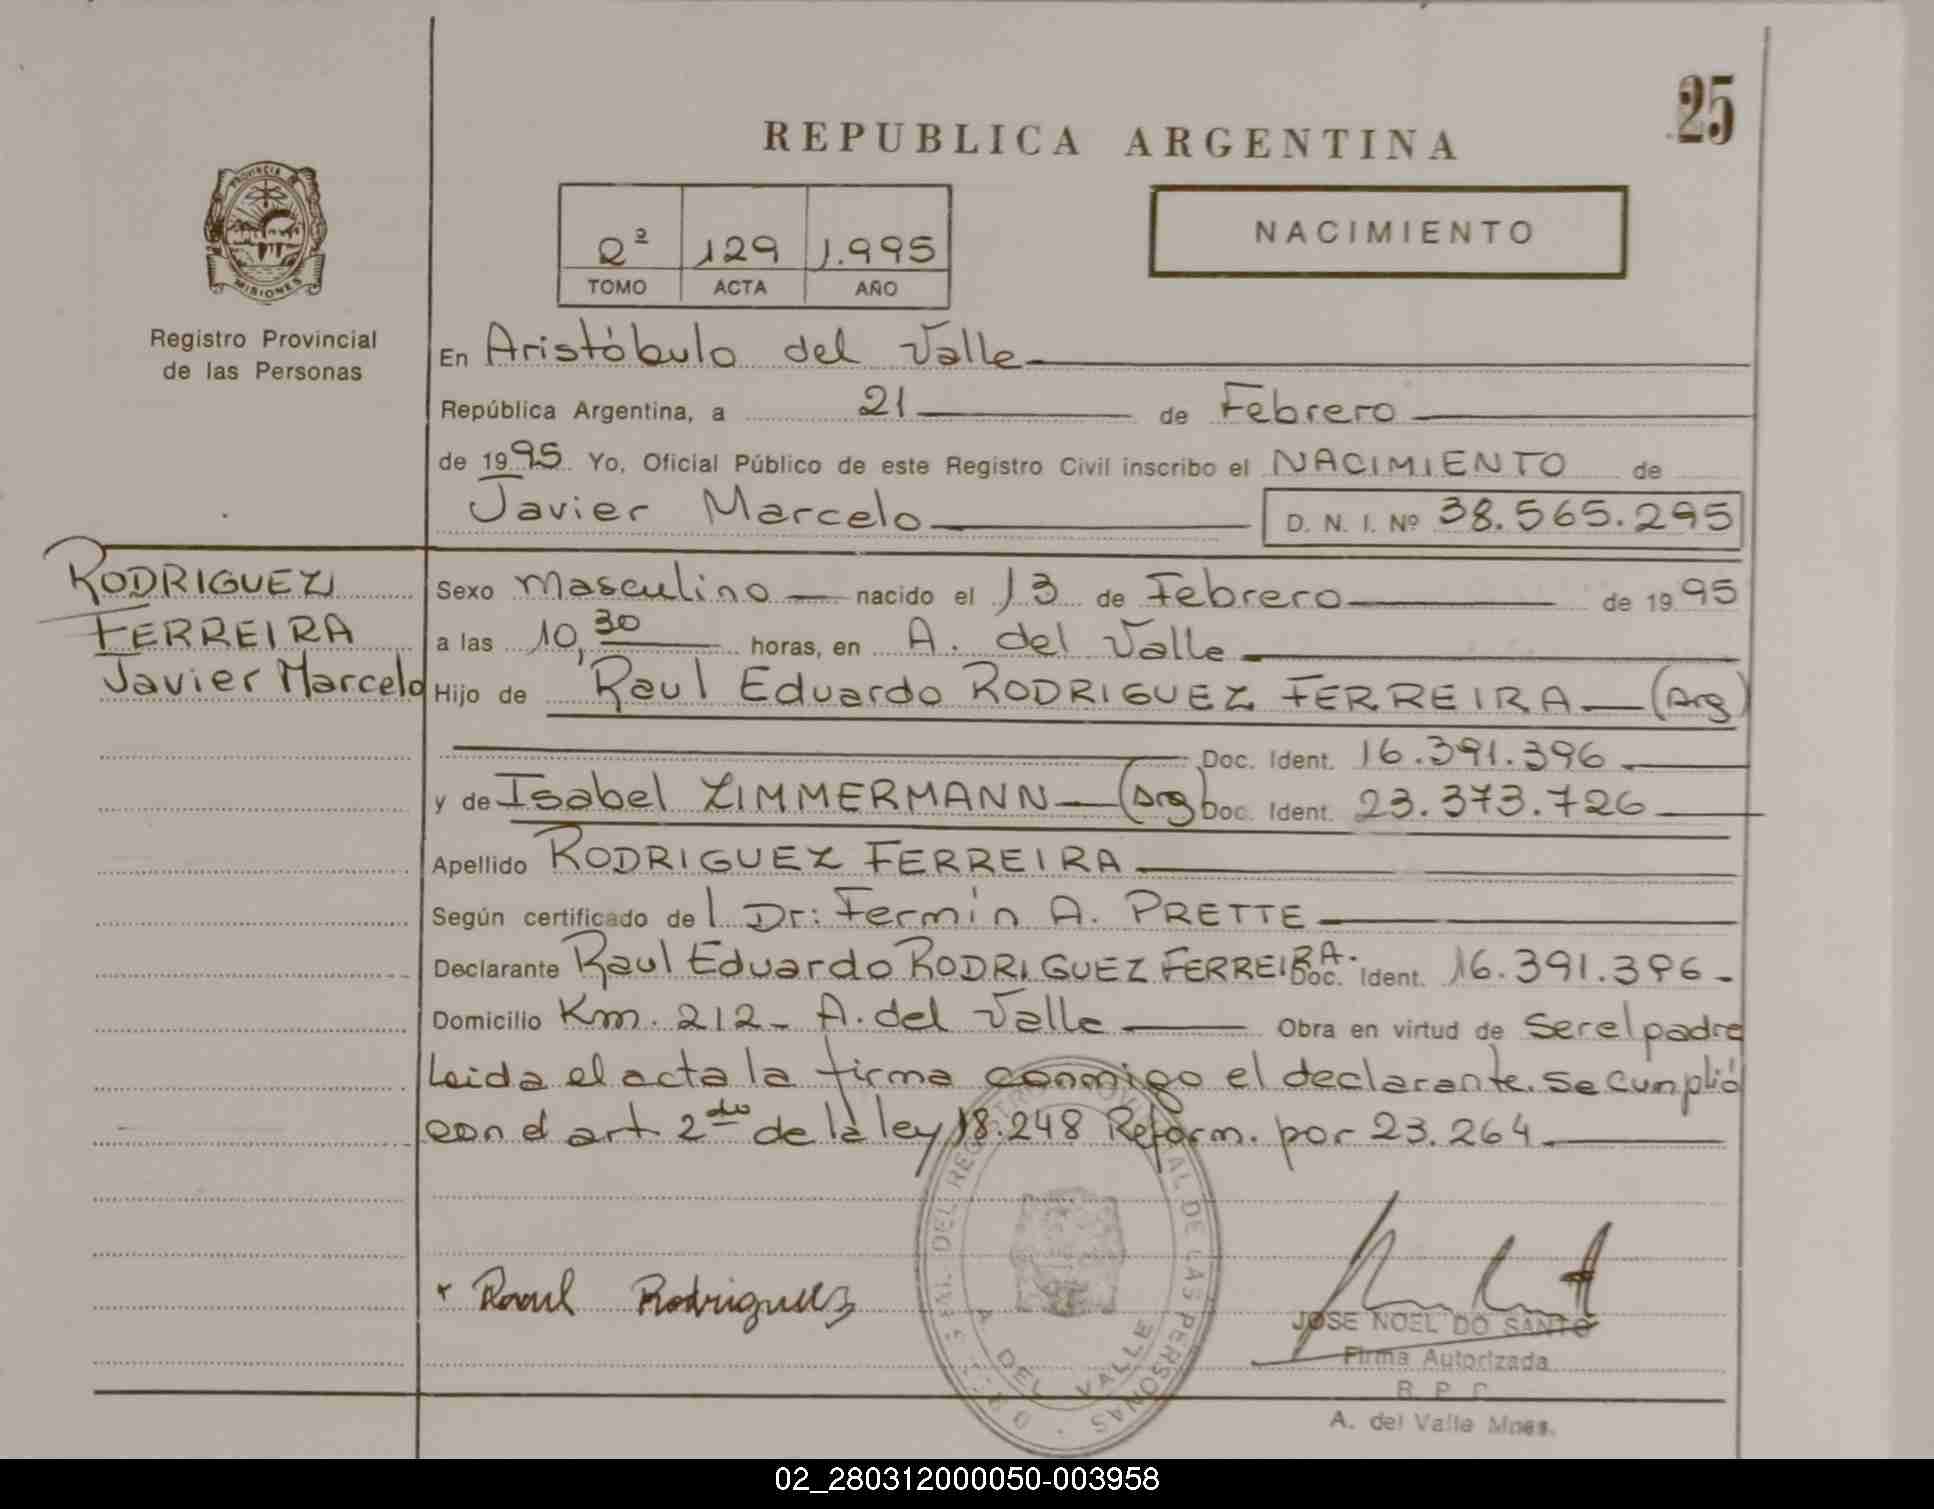 25
REPUBLICA ARGENTINA
PROVINCIA DE
MISIONES
Registro Provincial
de las Personas
2º 129 1.995
TOMO ACTA AÑO
NACIMIENTO
En Aristóbulo del Valle
República Argentina, a 21 de Febrero
de 1995 Yo, Oficial Público de este Registro Civil inscribo el NACIMIENTO de
Javier Marcelo D. N. I. Nº 38.565.295
RODRIGUEZ
FERREIRA
Javier Marcelo
Sexo masculino nacido el 13 de Febrero de 1995
a las 10,30 horas, en A. del Valle
Hijo de Raul Eduardo RODRIGUEZ FERREIRA (Arg)
Doc. Ident. 16.391.396
y de Isabel ZIMMERMANN (Arg) Doc. Ident. 23.373.726
Apellido RODRIGUEZ FERREIRA
Según certificado de l Dr: Fermin A. PRETTE
Declarante Raul Eduardo RODRIGUEZ FERREIRA. Doc. Ident. 16.391.396-
Domicilio Km. 212- A. del Valle Obra en virtud de ser el padre
Leida el acta la firma conmigo el declarante. Se cumplió
con el art 2do de la ley 18.248 Reform. por 23.264
Raul Rodriguez
DEL REGISTRO PROVINCIAL DE LAS PERSONAS
A. DEL VALLE
JOSE NOEL DO SANTO
Firma Autorizada
R. P. P.
A. del Valle Mnes.
02_280312000050-003958